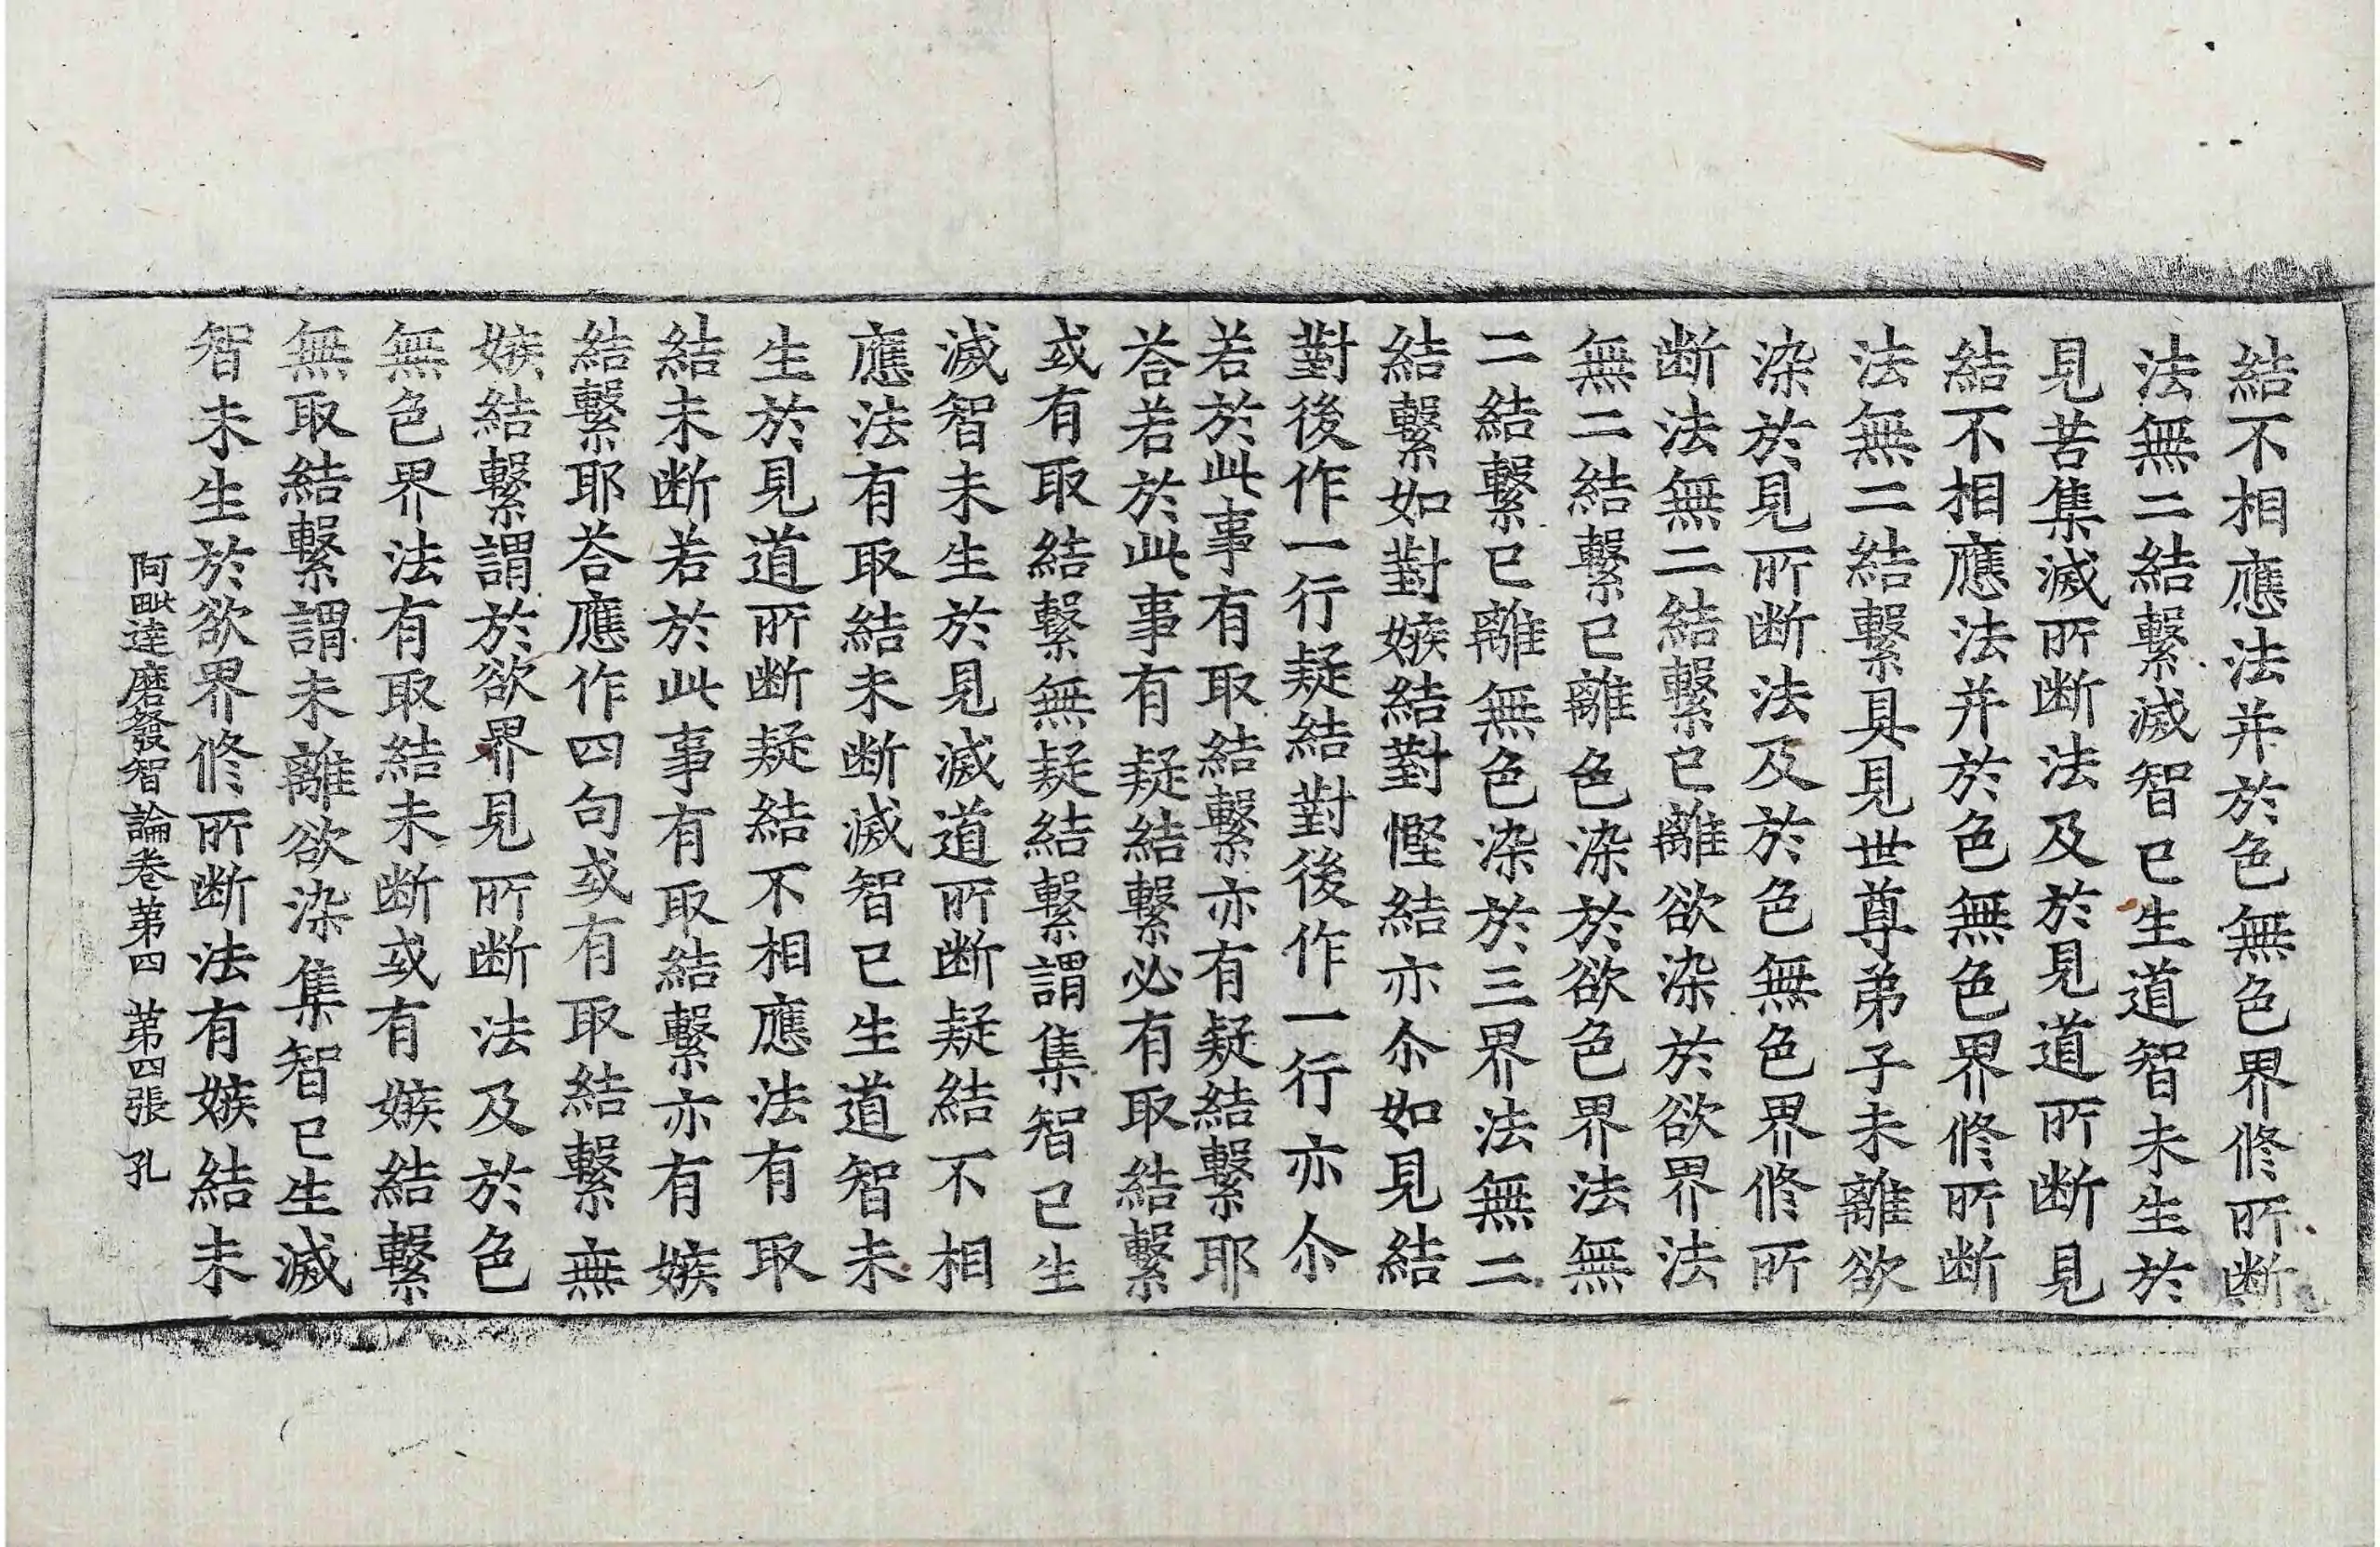 結不相應法并於色無色界修所断
法無二結繫滅智已生道智未生於
見苦集滅所断法及於見道所断見
結不相應法并於色無色界修所断
法無二結繫具見世尊弟子未離欲
染於見所断法及於色無色界修所
断法無二結繫已離欲染於欲界法
無二結繫已離色染於欲色界法無
二結繫已離無色染於三界法無二
結繫如對嫉結對慳結亦尒如見結
對後作一行疑結對後作一行亦尒
若於此事有取結繫亦有疑結繫耶
荅若於此事有疑結繫必有取結繫
或有取結繫無疑結繫謂集智已生
滅智未生於見滅道所断疑結不相
應法有取結未断滅智已生道智未
生於見道所断疑結不相應法有取
結未断若於此事有取結繫亦有嫉
結繫耶荅應作四句或有取結繫無
嫉結繫謂於欲界見所断法及於色
無色界法有取結未断或有嫉結繫
無取結繫謂未離欲染集智已生滅
智未生於欲界修所断法有嫉結未
阿毗達磨發智論卷苐四 苐四張 孔